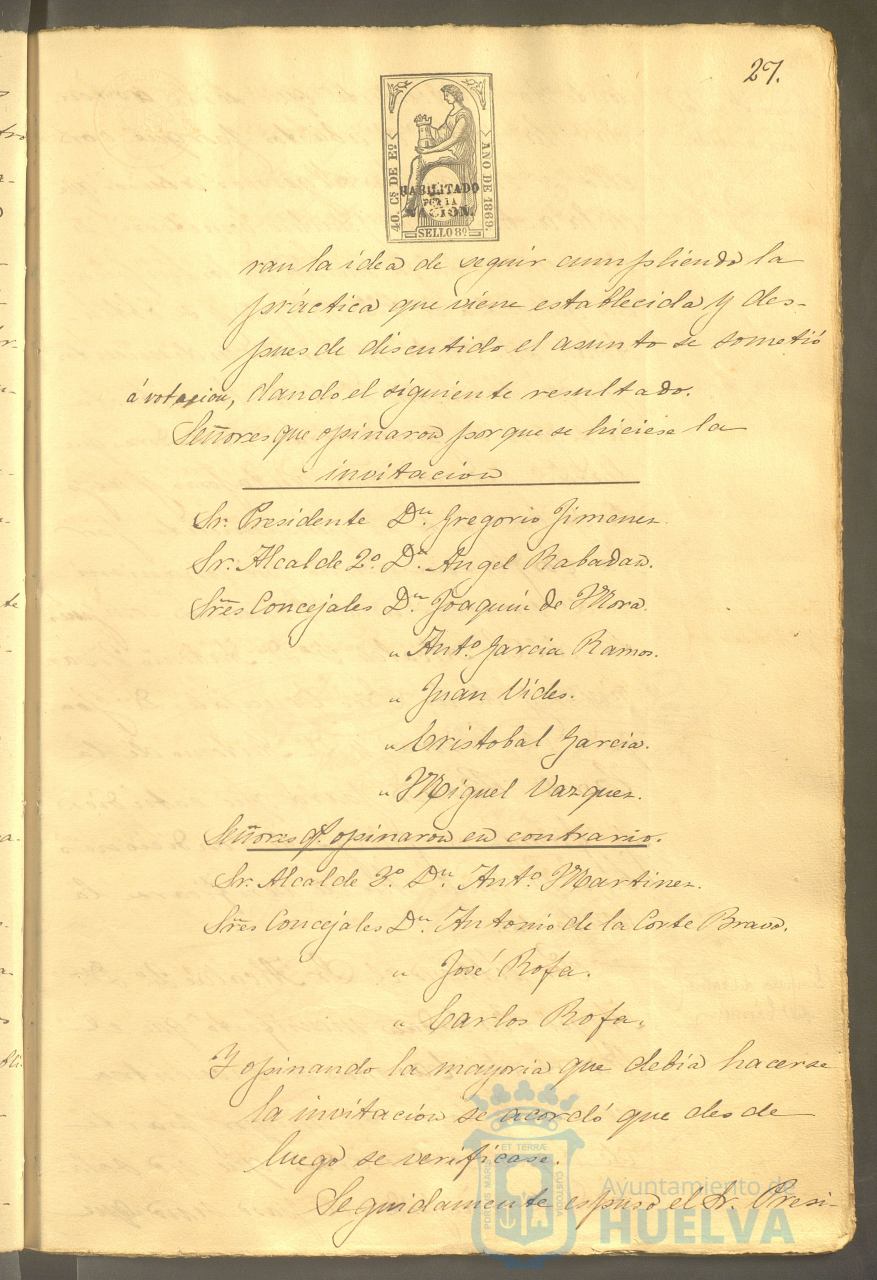 27.
40. Cs DE Eo
AÑO DE 1869.
HABILITADO
POR LA
NACION.
SELLO 8º
ran la idea de seguir cumpliendo la
práctica que viene establecida y des-
pues de discutido el asunto se sometió
á votacion, dando el siguiente resultado.
Señores que opinaron porque se hiciese la
invitacion
Sr. Presidente Dn. Gregorio Jimenez
Sr. Alcalde 2º. Dn. Angel Rabadan.
Sres Concejales Dn. Joaquin de Mora
" Antº. Garcia Ramos.
" Juan Vides.
" Cristobal Garcia.
" Miguel Vazquez.
Señores q. opinaron en contrario.
Sr. Alcalde 3º. Dn. Antº. Martinez.
Sres Concejales Dn. Antonio de la Corte Bravo.
" José Rofa.
" Carlos Rofa.
Y opinando la mayoria que debia hacerse
la invitación se acordó que desde
luego se verificase.
Seguidamente espuso el Sr. Presi-
PORTUS MARIS ET TERRÆ CUSTODIA
Ayuntamiento de
HUELVA